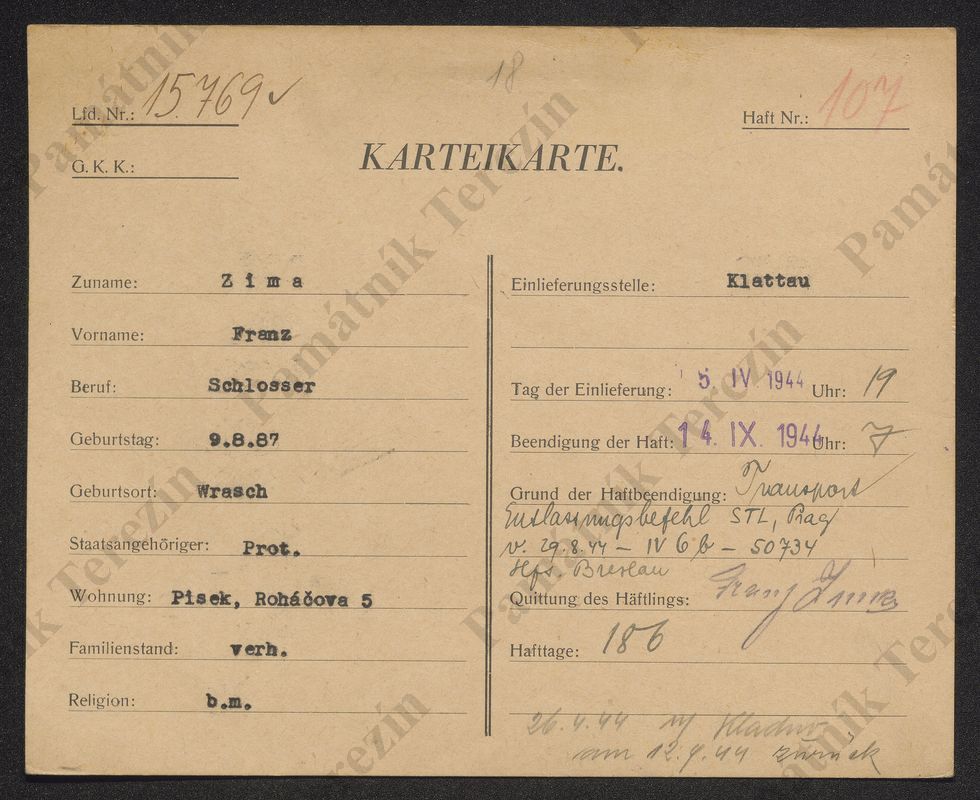 18
Lfd. Nr.: 15.769
Haft Nr.: 107
G. K. K.:
KARTEIKARTE.
Zuname: Zima
Vorname: Franz
Beruf: Schlosser
Geburtstag: 9.8.87
Geburtsort: Wrasch
Staatsangehöriger: Prot.
Wohnung: Pisek, Roháčova 5
Familienstand: verh.
Religion: b.m.
Einlieferungsstelle: Klattau
Tag der Einlieferung: 5. IV 1944 Uhr: 19
Beendigung der Haft: 14. IX. 1944 Uhr: 7
Grund der Haftbeendigung: Transport
Entlassungsbefehl STL, Prag
v. 29.8.44 – IV 6 b – 50734
Hfs. Breslau
Quittung des Häftlings: Franz Zima
Hafttage: 186
26.4.44 Kladno
am 12.9.44 zurück
Památník Terezín
Památník Terezín
Památník Terezín
Památník Terezín